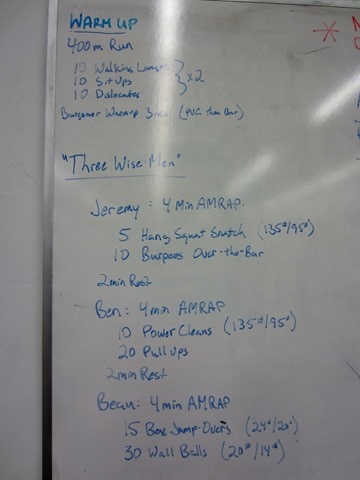 WARM UP
400m Run
10 Walking Lunges
10 Sit Ups } x2
10 Dislocates
Burgener Warmup 3min (PVC then Bar)
"Three Wise Men"
Jeremy: 4 Min AMRAP
5 Hang Squat Snatch (135#/95#)
10 Burpees Over-the-Bar
2min Rest
Ben: 4min AMRAP
10 Power Cleans (135#/95#)
20 Pull Ups
2min Rest
Beau: 4min AMRAP
15 Box Jump-Overs (24"/20")
30 Wall Balls (20#/14#)